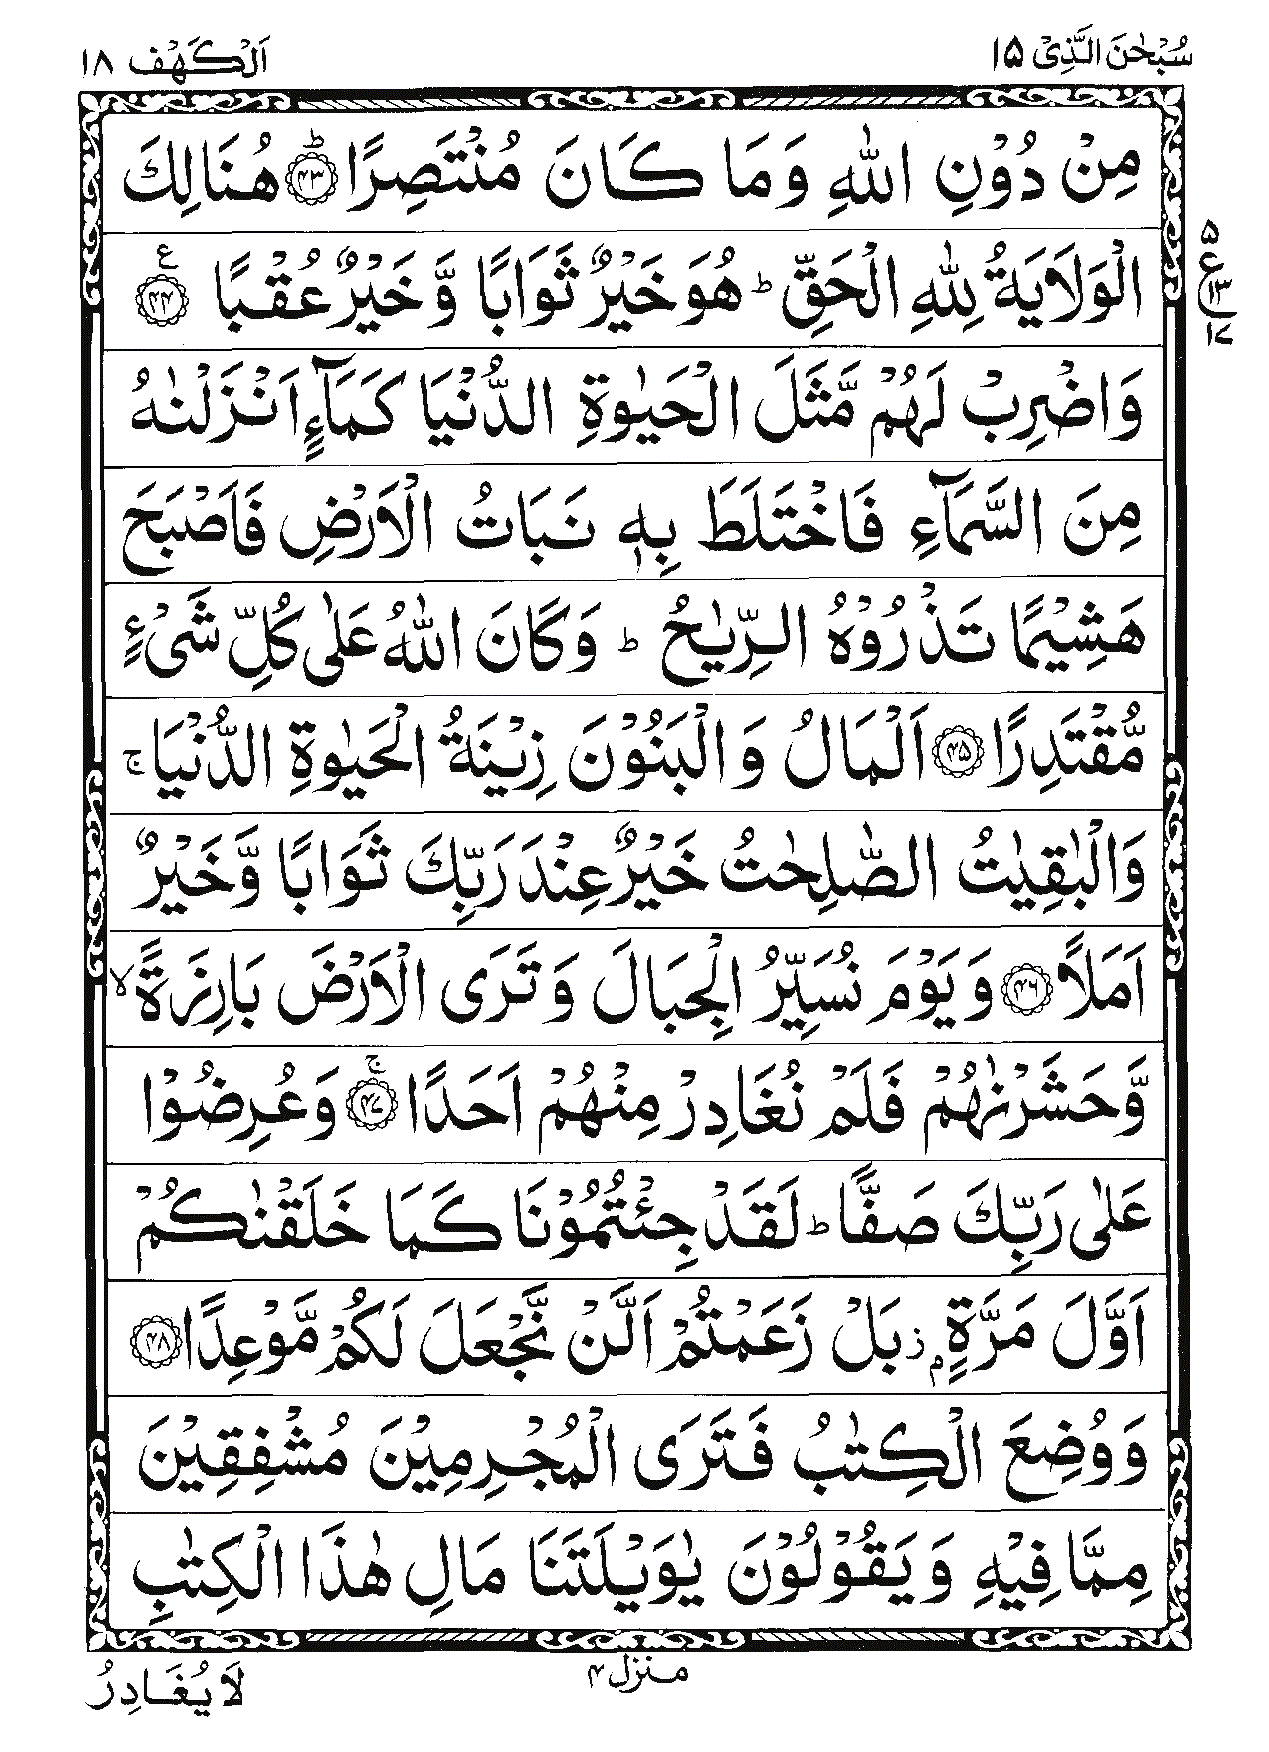 سُبْحٰنَ الَّذِیْ ۱۵
اَلْكَهْف ۱۸
مِنْ دُوْنِ اللّٰهِ وَمَا كَانَ مُنْتَصِرًا ؕ﴿۴۳﴾ هُنَالِكَ
الْوَلَایَةُ لِلّٰهِ الْحَقِّ ؕ هُوَ خَیْرٌ ثَوَابًا وَّ خَیْرٌ عُقْبًا ﴿۴۴﴾ ع
وَاضْرِبْ لَهُمْ مَّثَلَ الْحَیٰوةِ الدُّنْیَا كَمَآءٍ اَنْزَلْنٰهُ
مِنَ السَّمَآءِ فَاخْتَلَطَ بِهٖ نَبَاتُ الْاَرْضِ فَاَصْبَحَ
هَشِیْمًا تَذْرُوْهُ الرِّیٰحُ ؕ وَكَانَ اللّٰهُ عَلٰی كُلِّ شَیْءٍ
مُّقْتَدِرًا ﴿۴۵﴾ اَلْمَالُ وَالْبَنُوْنَ زِیْنَةُ الْحَیٰوةِ الدُّنْیَا ۚ
وَالْبٰقِیٰتُ الصّٰلِحٰتُ خَیْرٌ عِنْدَ رَبِّكَ ثَوَابًا وَّخَیْرٌ
اَمَلًا ﴿۴۶﴾ وَیَوْمَ نُسَیِّرُ الْجِبَالَ وَتَرَی الْاَرْضَ بَارِزَةً ۙ
وَّحَشَرْنٰهُمْ فَلَمْ نُغَادِرْ مِنْهُمْ اَحَدًا ۚ﴿۴۷﴾ وَعُرِضُوْا
عَلٰی رَبِّكَ صَفًّا ؕ لَقَدْ جِئْتُمُوْنَا كَمَا خَلَقْنٰكُمْ
اَوَّلَ مَرَّةٍۭ ز بَلْ زَعَمْتُمْ اَلَّنْ نَّجْعَلَ لَكُمْ مَّوْعِدًا ﴿۴۸﴾
وَوُضِعَ الْكِتٰبُ فَتَرَی الْمُجْرِمِیْنَ مُشْفِقِیْنَ
مِمَّا فِیْهِ وَیَقُوْلُوْنَ یٰوَیْلَتَنَا مَالِ هٰذَا الْكِتٰبِ
۵
ع ۱۳
۱۷
منزل ۴
لَا یُغَادِرُ